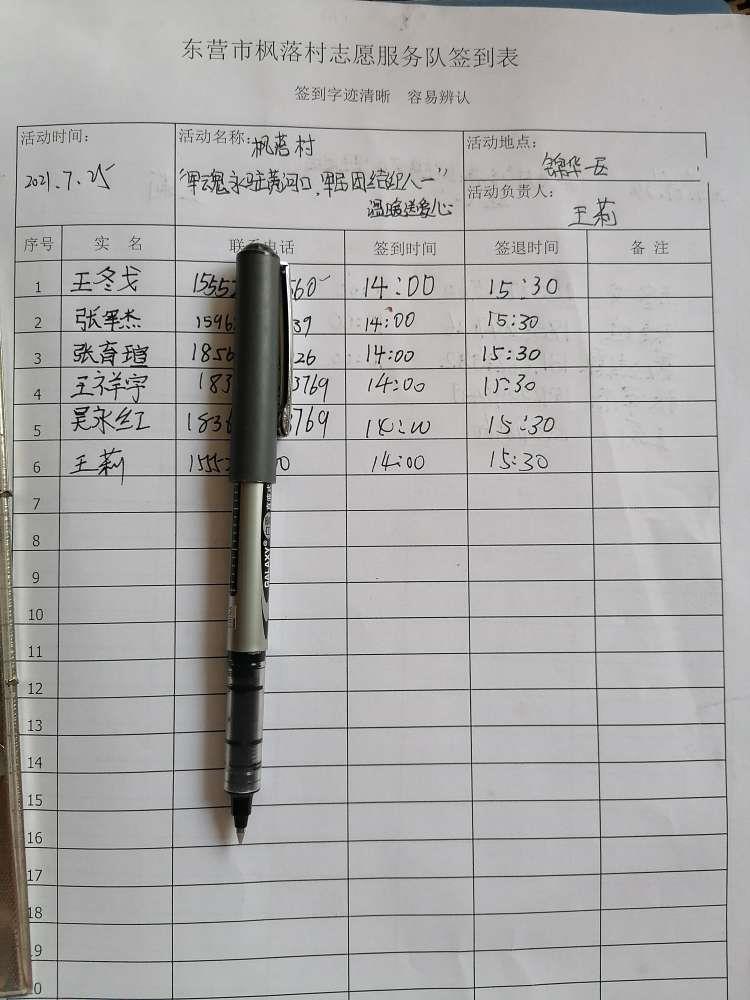 东营市枫落村志愿服务队签到表
签到字迹清晰 容易辨认
活动时间: 2021.7.25
活动名称: 枫落村
"军魂永驻黄河口,军民团结织人一"
温暖送爱心
活动地点: 锦华一区
活动负责人: 王莉
序号 实 名 联系电话 签到时间 签退时间 备 注
1 王冬戈 15552 560 14:00 15:30
2 张军杰 1596 39 14:00 15:30
3 张育瑄 1856 26 14:00 15:30
4 王祥宇 183 3769 14:00 15:30
5 吴永红 1836 3769 14:00 15:30
6 王莉 1555 0 14:00 15:30
7
8
9
10
11
12
13
14
15
16
17
18
19
GALAXY